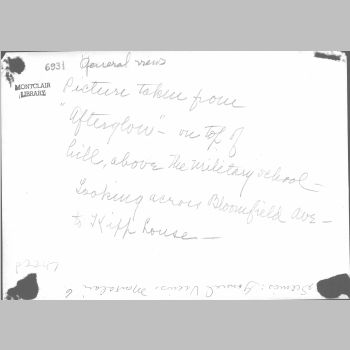 6931 General views
MONTCLAIR
LIBRARY
Picture taken from
"Afterglow" - on top of
hill, above the military school -
Looking across Bloomfield Ave -
to Kipp house -
Scenics: General Views: Montclair